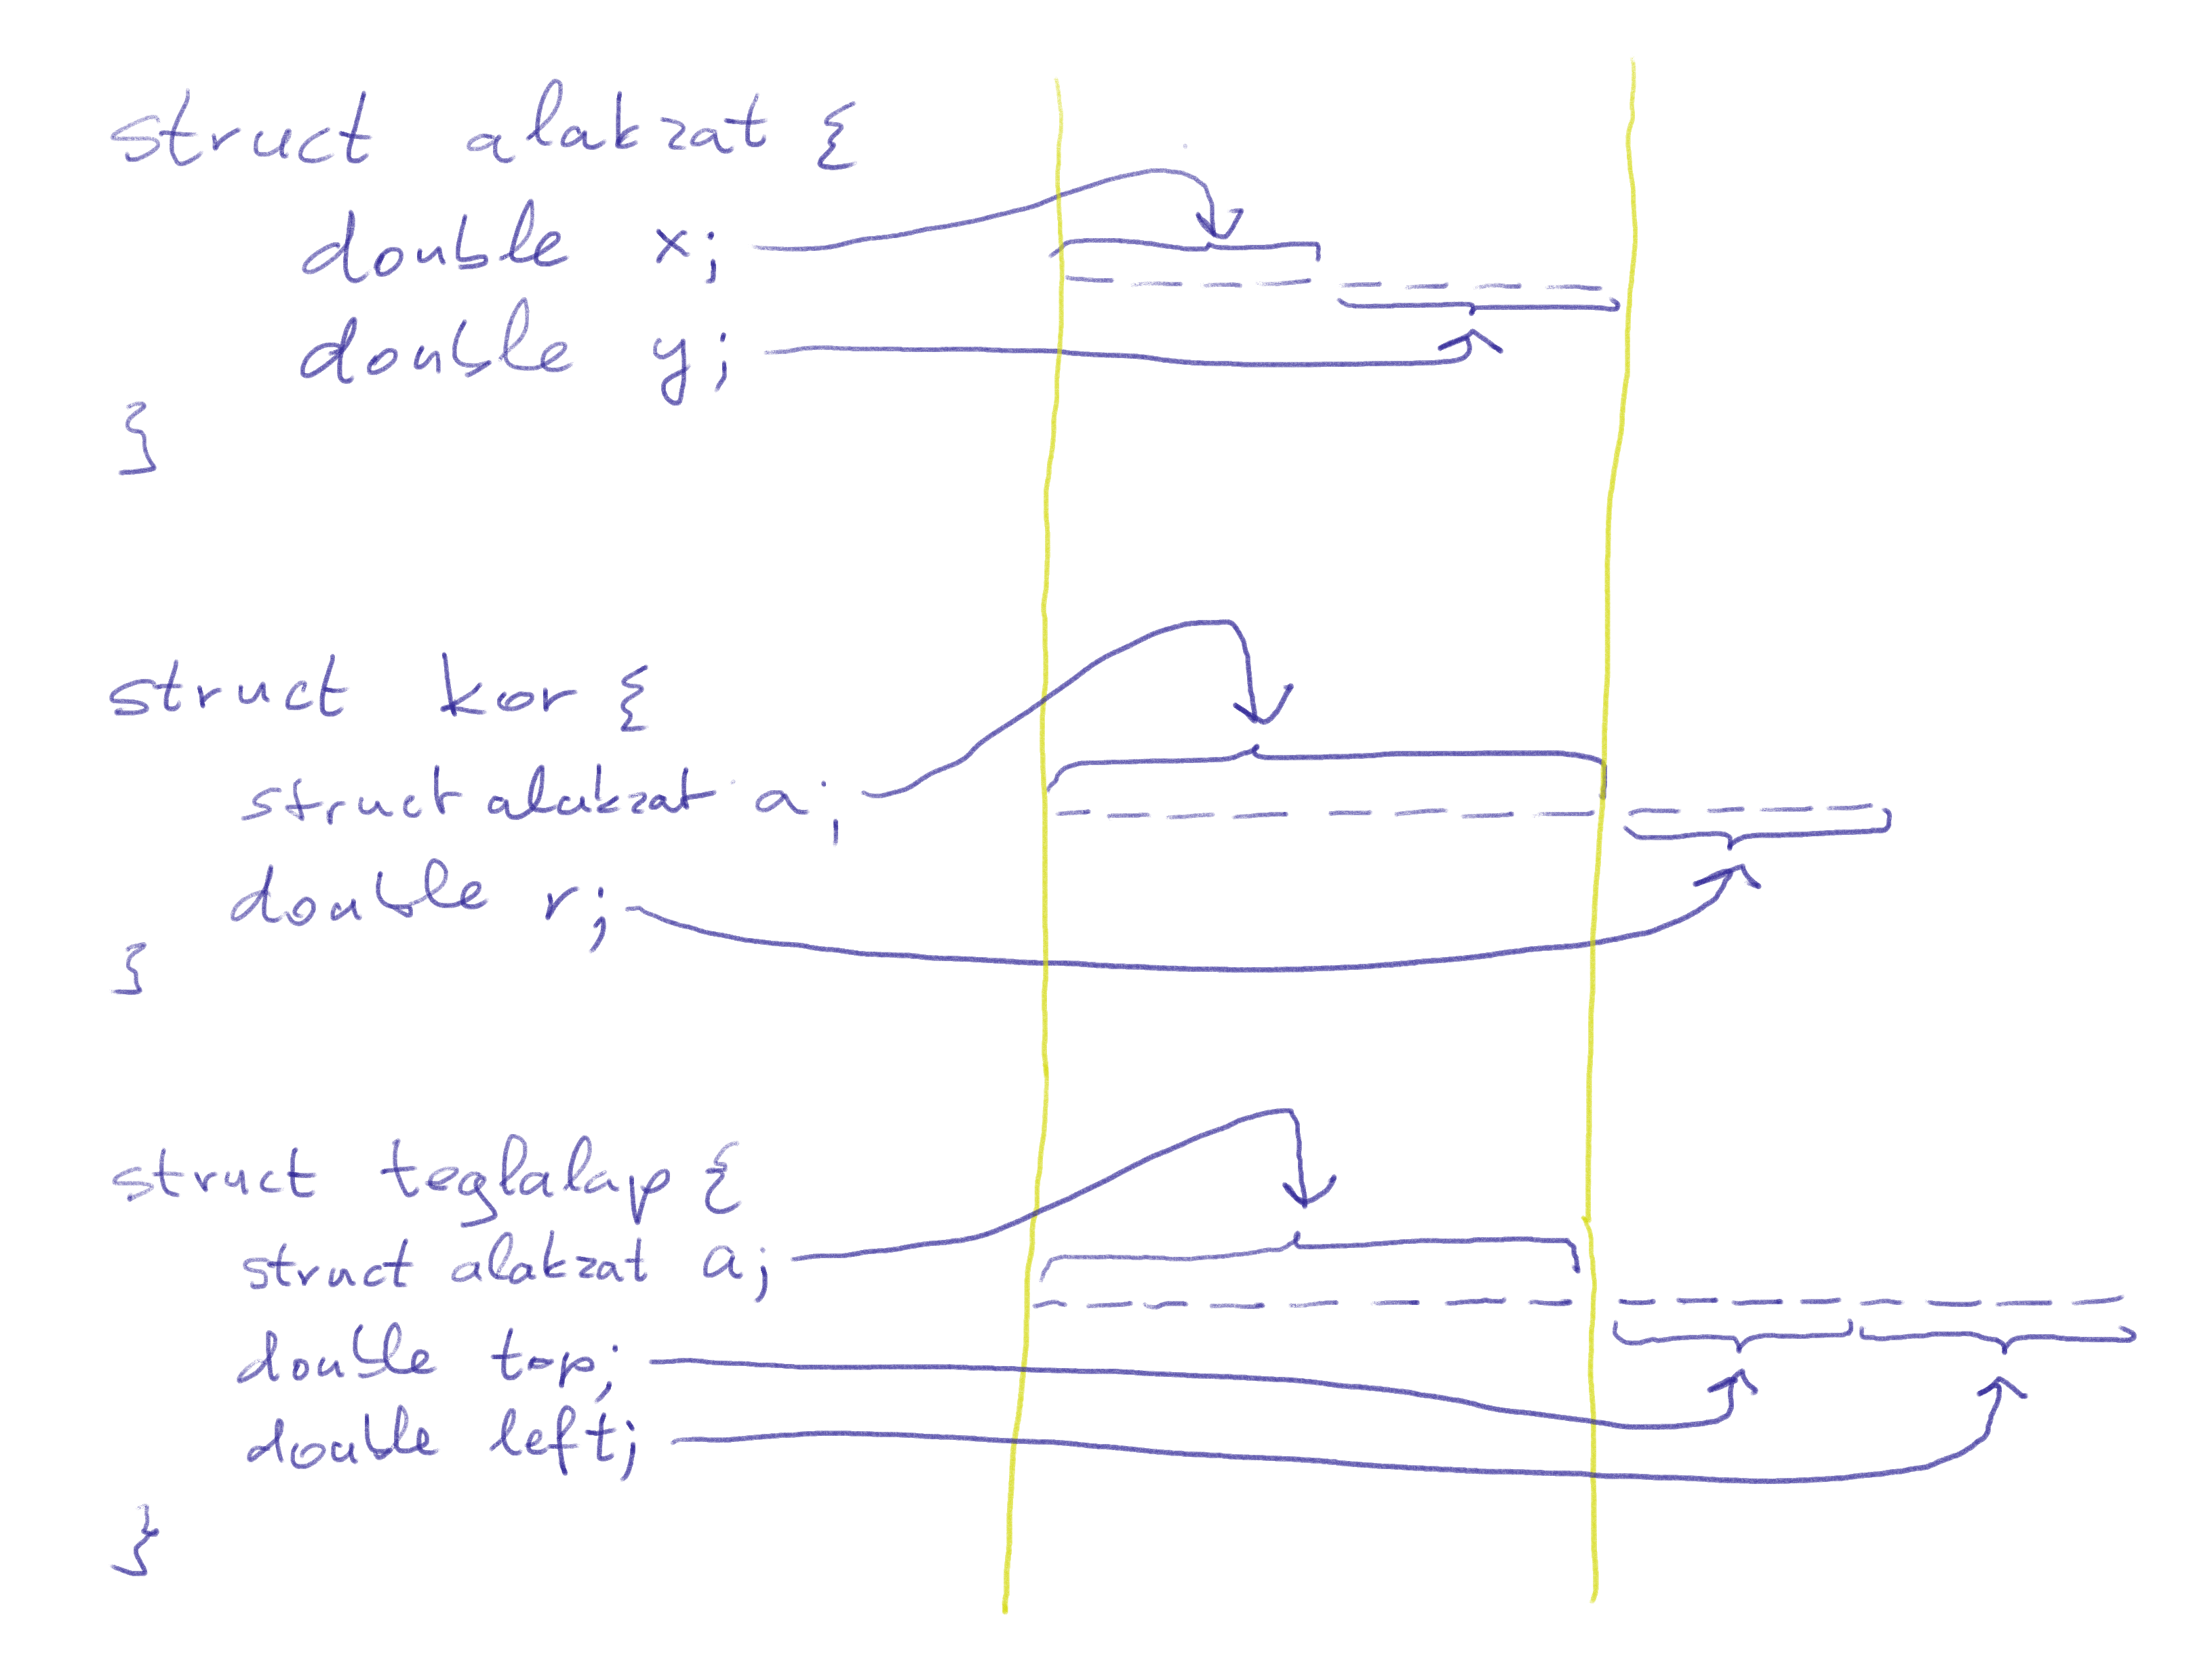 struct alakzat {
double x;
double y;
}
struct kor {
struct alakzat a;
double r;
}
struct teglalap {
struct alakzat a;
double top;
double left;
}